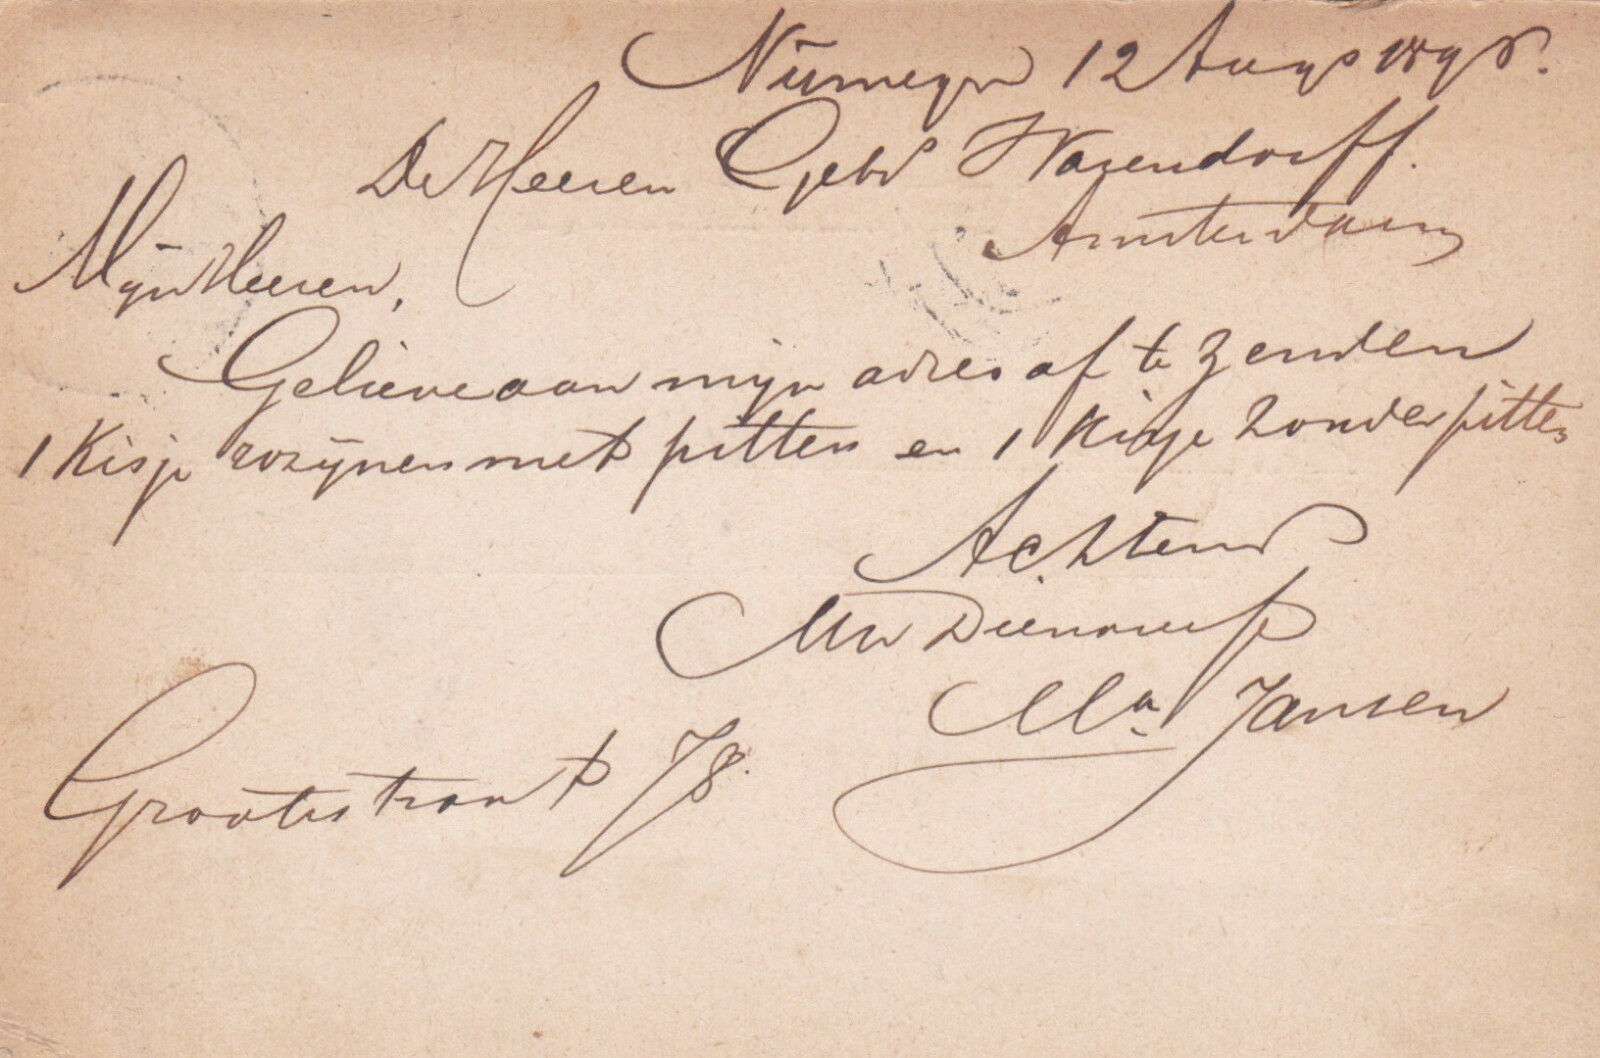 Nijmegen 12 Augs 1898.
De Heeren Gebrs Wagendorff.
Amsterdam
Mijne Heeren,
Gelieve aan mijn adres af te zenden
1 Kisje rozijnen met pitten en 1 Kisje zonder pitten
Achtend
Uw Dienaresse
Ma Jansen
Grootestraat 78.